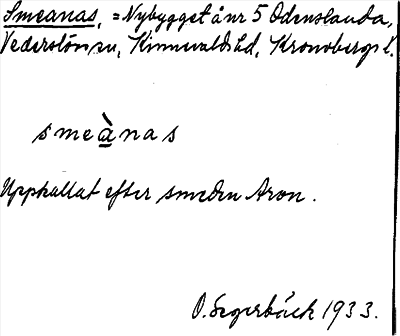 Smeanas, = Nybygget å nr 5 Odenslanda,
Vederslövs sn, Kinnevalds hd, Kronobergs l.
smeànas
Upphallat efter smeden Aron.
O. Segerbäck 1933.